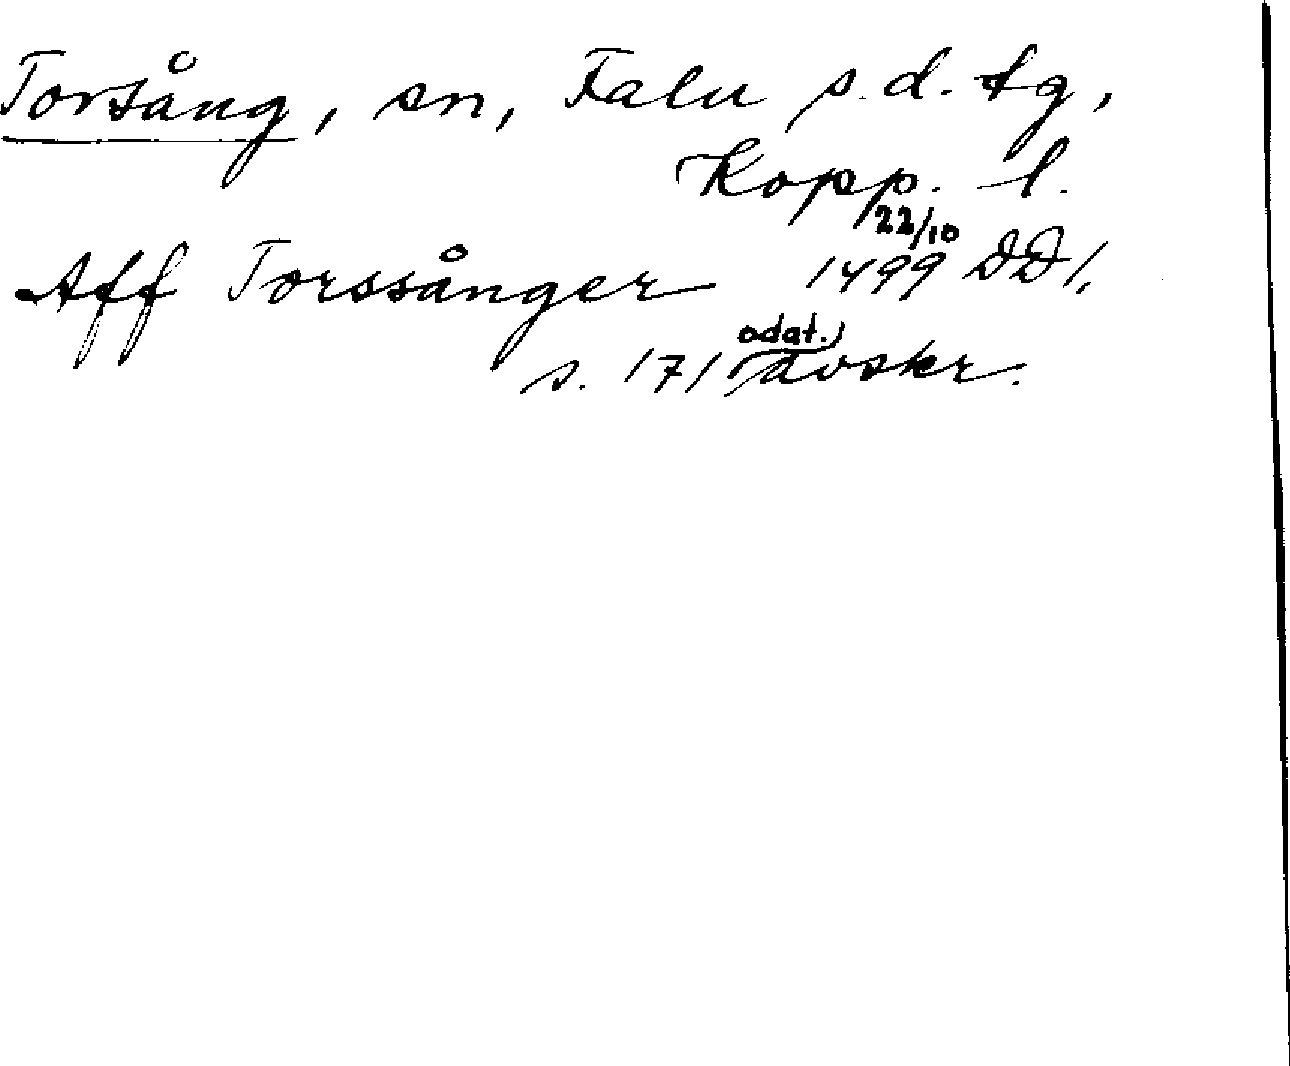 Torsång, sn, Falu s.d. tg,
Kopp. l.
Aff Torssånger 22/10 1499 DD 1,
s. 171, odat. avskr.